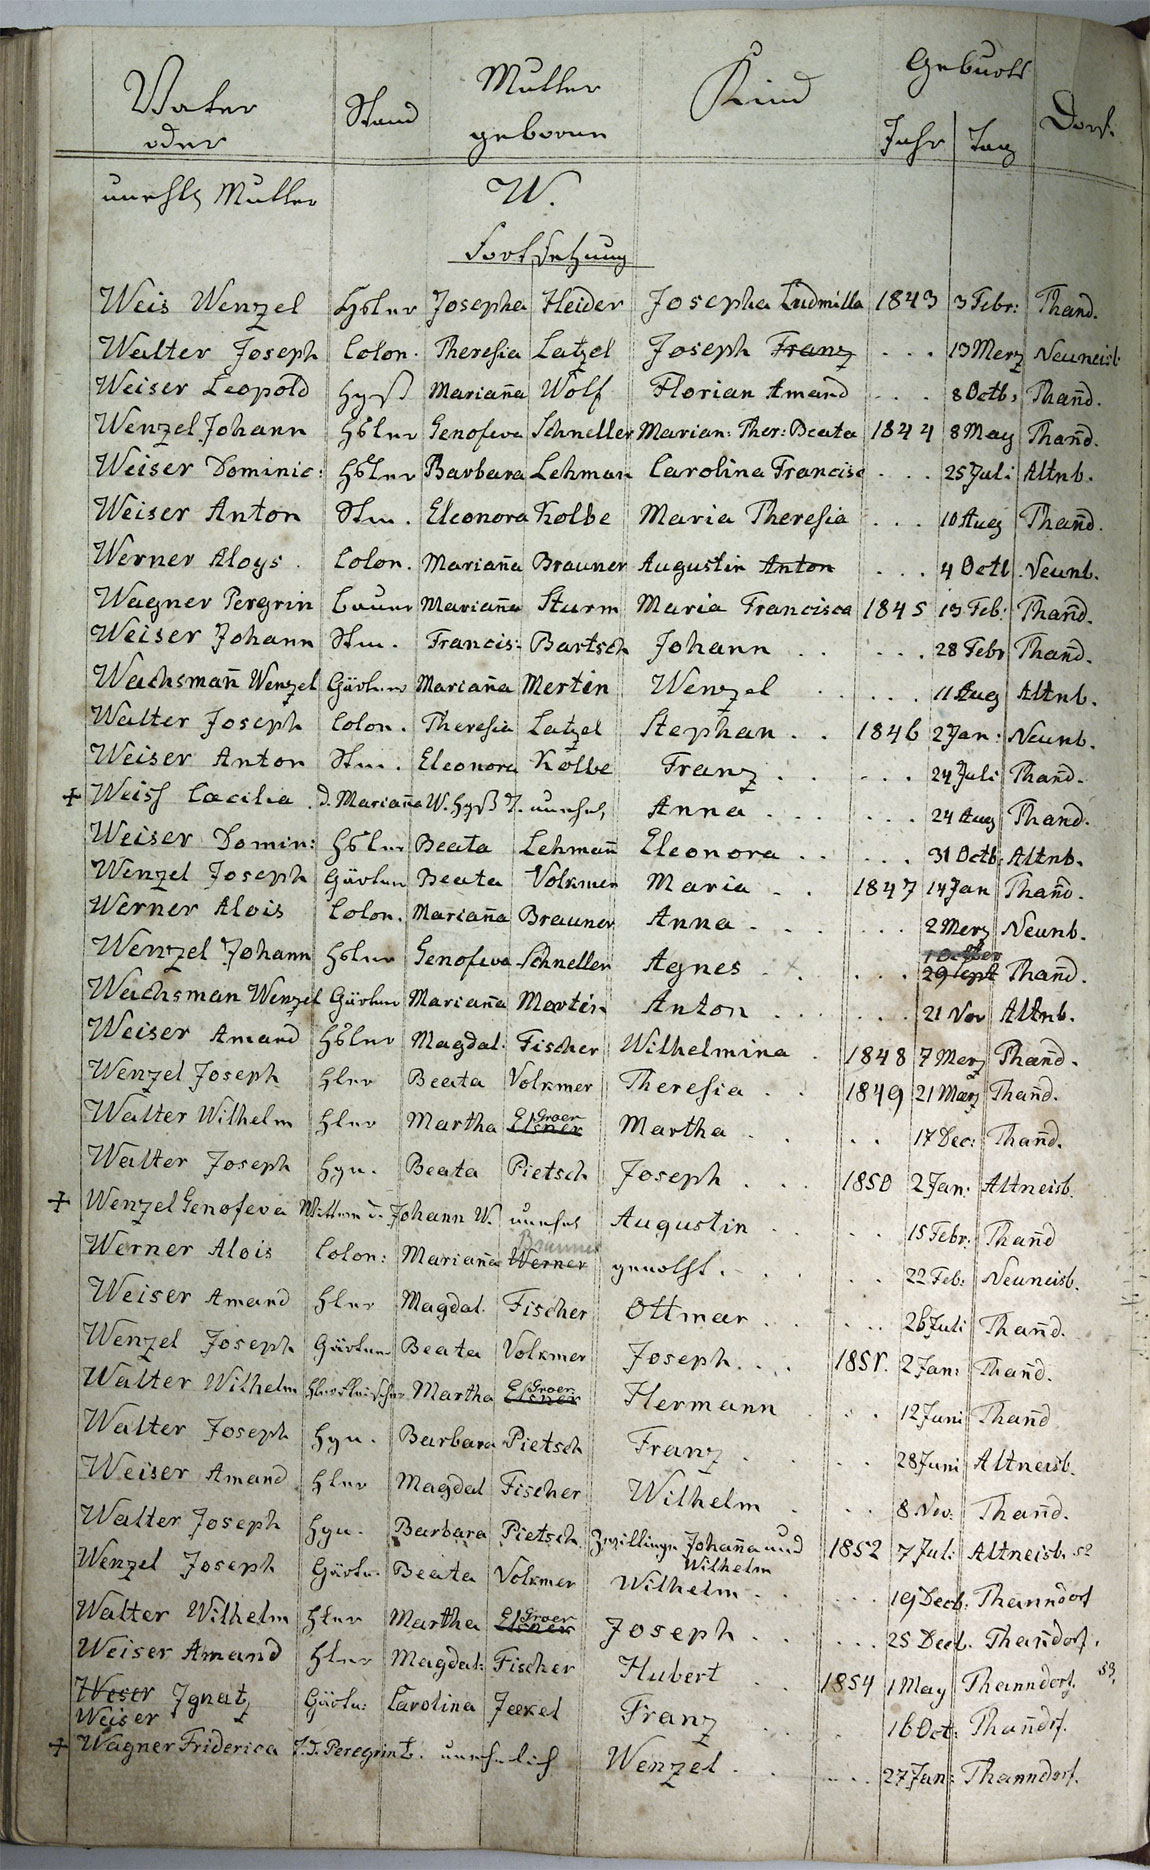 Vater Stand Mutter Kind Geburts Dorf
oder geborne Jahr Tag
unehl. Mutter W.
Fortsetzung
Weis Wenzel Hsler Josepha Heider Josepha Ludmilla 1843 3 Febr: Thand.
Walter Joseph Colon. Theresia Latzel Joseph Franz . . . 13 Merz Neuneisb
Weiser Leopold Mariana Wolf Florian Amand . . . 8 Octb: Thand.
Wenzel Johann Hsler Genofeva Schneller Marian: Ther: Beata 1844 8 May Thand.
Weiser Dominic: Hsler Barbara Lehman Carolina Francisc . . . 25 Juli Altnb.
Weiser Anton Stm. Eleonora Kolbe Maria Theresia . . . 10 Aug Thand.
Werner Aloys. Colon. Mariana Brauner Augustin Anton . . . 4 Octb. Neunb.
Wagner Pergrin Bauer Mariana Sturm Maria Francisca 1845 13 Feb: Thand.
Weiser Johann Stm. Francis: Bartsch Johann . . . . . 28 Febr Thand.
Wachsman Wenzel Gärtner Mariana Merten Wenzel . . . . . 11 Aug Altnb.
Walter Joseph Colon. Theresia Latzel Stephan . . 1846 2 Jan: Neunb.
Weiser Anton Stm. Eleonora Kolbe Franz . . . . . 24 Juli Thand.
+ Weiss Cæcilia. d. Mariana W. T. unehel. Anna . . . . . 24 Aug Thand.
Weiser Domin: Hsler Beata Lehman Eleonora . . . . . 31 Octb: Altnb.
Wenzel Joseph Gärtner Beata Volkmer Maria . . 1847 14 Jan Thand.
Werner Alois Colon. Mariana Brauner Anna . . . . . 2 Merz Neunb.
Wenzel Johann Hsler Genofeva Schneller Agnes . x . . . 29 Sept Thand.
Wachsman Wenzel Gärtner Mariana Merten Anton . . . . . 21 Nov Altnb.
Weiser Amand Hsler Magdal. Fischer Wilhelmina . 1848 7 Merz Thand.
Wenzel Joseph Hler Beata Volkmer Theresia . . 1849 21 März Thand.
Walter Wilhelm Hler Martha Elsner Groer Martha . . . . 17 Dec: Thand.
Walter Joseph Beata Pietsch Joseph . . . 1850 2 Jan. Altneisb.
+ Wenzel Genofeva Wittwe d. Johann W. unehel Augustin . . . 15 Febr. Thand
Werner Alois Colon: Mariana Werner Brauner genothft. . . . . 22 Feb: Neuneisb.
Weiser Amand Hler Magdal. Fischer Ottmar . . . . . 26 Juli Thand.
Wenzel Joseph Gärtner Beata Volkmer Joseph . . . 1851. 2 Jan: Thand.
Walter Wilhelm Hler Fleischer Martha Elsner Groer Hermann . . . 12 Juni Thand
Walter Joseph Barbara Pietsch Franz . . . 28 Juni Altneisb.
Weiser Amand Hler Magdal Fischer Wilhelm . . . 8 Nov. Thand.
Walter Joseph Barbara Pietsch. Zwillinge Johana und Wilhelm 1852 7 Juli Altneisb. 52
Wenzel Joseph Gärtn. Beata Volkmer Wilhelm . . . . 19 Decb. Thanndorf
Walter Wilhelm Hler Martha Elsner Groer Joseph . . . . . 25 Decb. Thandorf.
Weiser Amand Hler Magdal: Fischer Hubert . . 1854 1 May Thanndorf. 53.
Weser Weiser Ignatz Gärtn: Carolina Jækel Franz . . . 16 Oct: Thandrf.
+ Wagner Friderica T. d. Peregrin B. unehelich Wenzel . . . . . 27 Jan: Thanndorf.